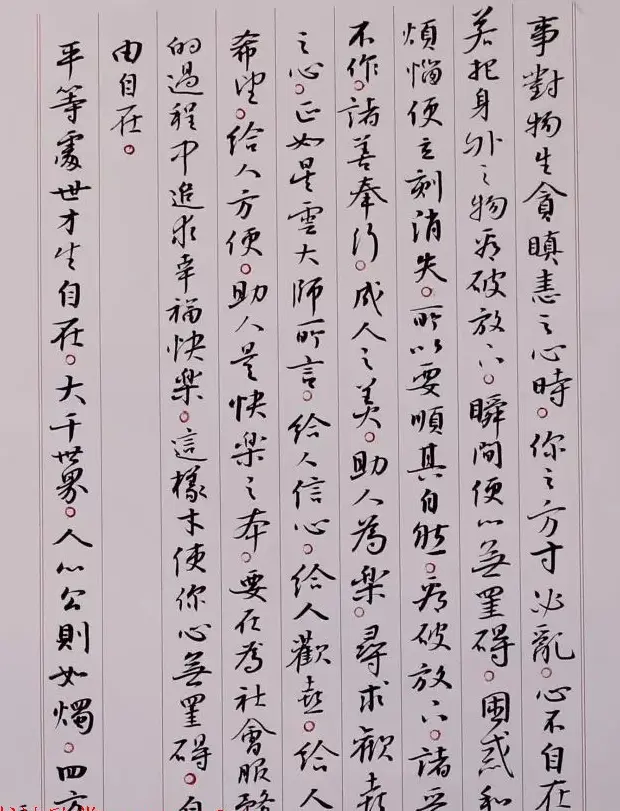 事對物生貪瞋恚之心時。你之方寸必亂。心不自在
若把身外之物看破放下。瞬間便心無罣碍。困惑和
煩惱便立刻消失。所以要順其自然。看破放下。諸
不作。諸善奉行。成人之美。助人為樂。尋求歡喜
之心。正如星雲大師所言。給人信心。給人歡喜。給人
希望。給人方便。助人是快樂之本。要在為社會服務
的過程中追求幸福快樂。這樣才使你心無罣碍。自
由自在。
平等處世才生自在。大千世界。人心公則如燭。四方